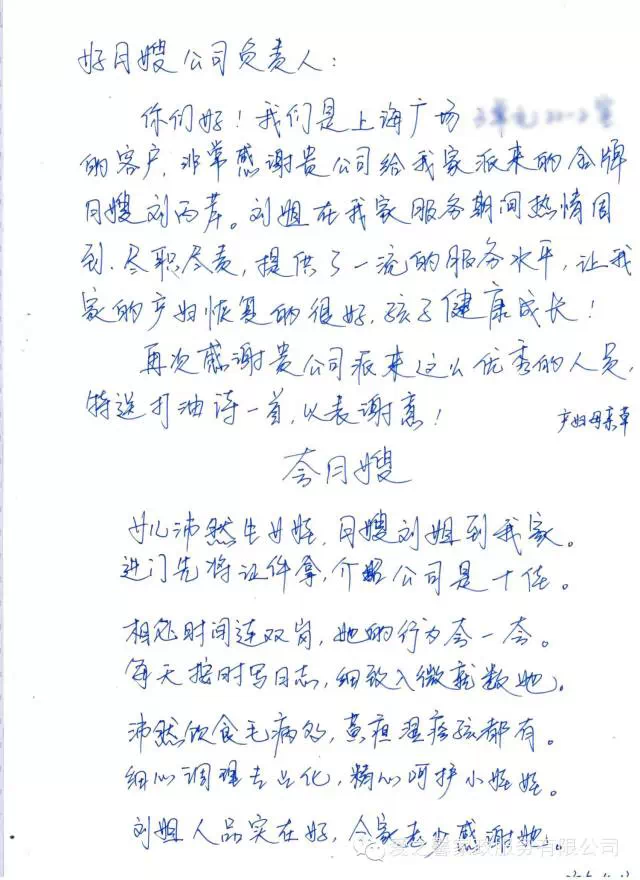 好月嫂公司负责人：
你们好！我们是上海广场
的客户，非常感谢贵公司给我家派来的金牌
月嫂刘丙芹。刘姐在我家服务期间热情周
到、尽职尽责，提供了一流的服务水平，让我
家的产妇恢复的很好，孩子健康成长！
再次感谢贵公司派来这么优秀的人员，
特送打油诗一首，以表谢意！
产妇母亲草
夸月嫂
女儿沛然生女娃，月嫂刘姐到我家。
进门先将证件拿，介绍公司是十佳。
相处时间连双岗，她的行为夸一夸。
每天按时写日志，细致入微就数她。
沛然饮食毛病多，黄疸湿疹孩都有。
细心调理去点化，精心呵护小娃娃。
刘姐人品实在好，全家老少感谢她。
爱之馨家政服务有限公司